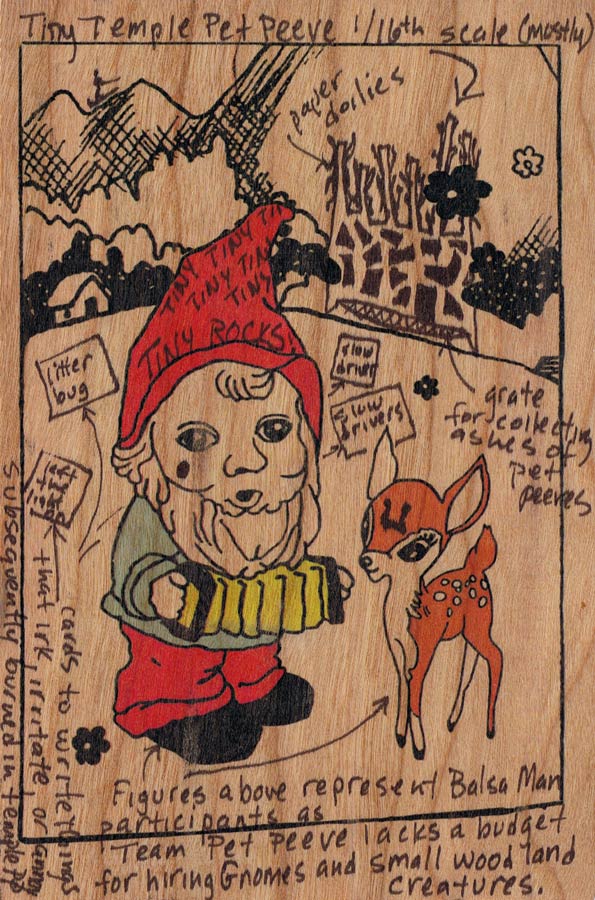 Tiny Temple Pet Peeve 1/16th scale (mostly)
paper
doilies
TINY TINY TIN
TINY TIN
TINY
TINY ROCKS!
litter
bug
slow
driver
slow
drivers
grate
for collecting
ashes of
pet
peeves
cards to write things
that irk, irritate, or
subsequently burned in temple
Figures above represent Balsa Man
participants as
Team Pet Peeve lacks a budget
for hiring Gnomes and small woodland
creatures.